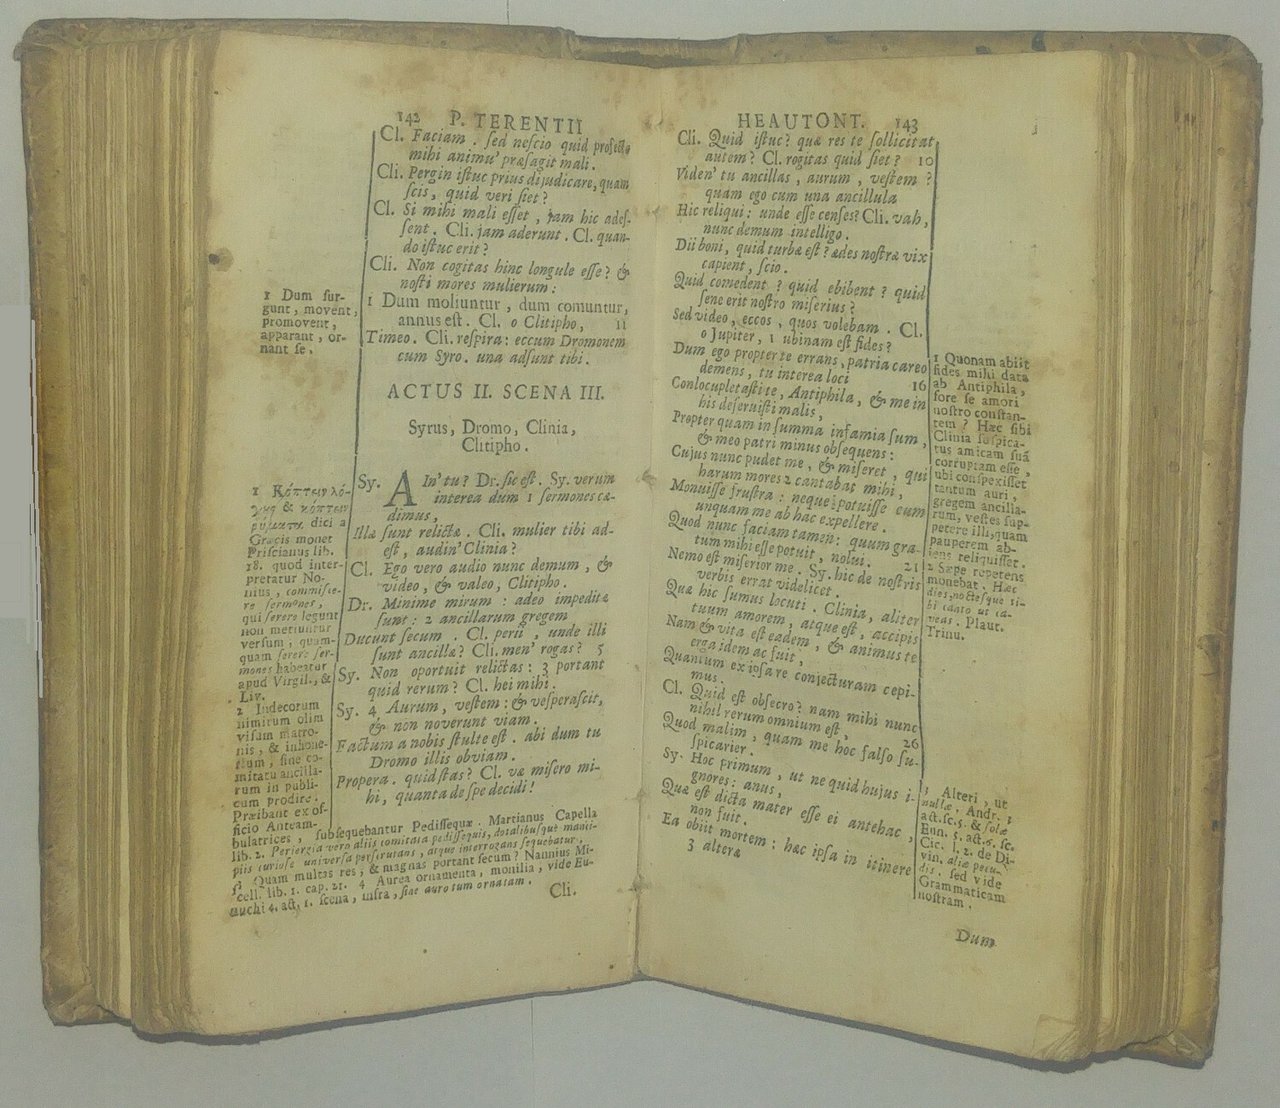 142 P. TERENTII
Cl. Faciam. sed nescio quid profecto
mihi animu' præsagit mali.
Cli. Pergin istuc prius dijudicare, quam
scis, quid veri siet?
Cl. Si mihi mali esset, jam hic ades-
sent. Cli. jam aderunt. Cl. quan-
do istuc erit?
Cli. Non cogitas hinc longule esse? &
nosti mores mulierum:
1 Dum moliuntur, dum comuntur,
annus est. Cl. o Clitipho, 11
Timeo. Cli. respira: eccum Dromonem
cum Syro. una adsunt tibi.
ACTUS II. SCENA III.
Syrus, Dromo, Clinia,
Clitipho.
Sy. AIn' tu? Dr. sic est. Sy. verum
interea dum 1 sermones cæ-
dimus,
Illæ sunt relictæ. Cli. mulier tibi ad-
est, audin' Clinia?
Cl. Ego vero audio nunc demum, &
video, & valeo, Clitipho.
Dr. Minime mirum: adeo impeditæ
sunt: 2 ancillarum gregem
Ducunt secum. Cl. perii, unde illi
sunt ancillæ? Cli. men' rogas? 5
Sy. Non oportuit relictas: 3 portant
quid rerum? Cl. hei mihi.
Sy. 4 Aurum, vestem: & vesperascit,
& non noverunt viam.
Factum a nobis stulte est. abi dum tu
Dromo illis obviam.
Propera. quid stas? Cl. væ misero mi-
hi, quanta de spe decidi!
1 Dum sur-
gunt, movent,
promovent,
apparant, or-
nant se.
1 Κόπτειν λό-
γους & κόπτειν
ῥήματα dici a
Græcis monet
Priscianus lib.
18. quod inter-
pretatur No-
nius, commisce-
re sermones,
qui serere legunt
non metiuntur
versum, quam-
quam serere ser-
mones habeatur
apud Virgil., &
Liv.
2 Indecorum
nimirum olim
visum matro-
nis, & inhone-
stum, sine co-
mitatu ancilla-
rum in publi-
cum prodire.
Præibant ex of-
ficio Anteam-
bulatrices, subsequebantur Pedissequæ. Martianus Capella
lib. 2. Periergia vero aliis comitata pedissequis, dotalibusque manci-
piis curiose universa perscrutans, atque interrogans sequebatur.
3 Quam multas res, & magnas portant secum? Nannius Mi-
scell. lib. 1. cap. 21. 4 Aurea ornamenta, monilia, vide Eu-
nuchi 4. act. 1. scena, infra, sine auro tum ornatam.
Cli.
HEAUTONT. 143
Cli. Quid istuc? quæ res te sollicitat
autem? Cl. rogitas quid siet? 10
Viden' tu ancillas, aurum, vestem?
quam ego cum una ancillula
Hic reliqui: unde esse censes? Cli. vah,
nunc demum intelligo.
Dii boni, quid turbæ est? ædes nostræ vix
capient, scio.
Quid comedent? quid ebibent? quid
sene erit nostro miserius?
Sed video, eccos, quos volebam. Cl.
o Jupiter, 1 ubinam est fides?
Dum ego propter te errans, patria careo
demens, tu interea loci 16
Conlocupletasti te, Antiphila, & me in
his deseruisti malis,
Propter quam in summa infamia sum,
& meo patri minus obsequens:
Cujus nunc pudet me, & miseret, qui
harum mores 2 cantabat mihi,
Monuisse frustra: neque potuisse eum
unquam me ab hac expellere.
Quod nunc faciam tamen: quum gra-
tum mihi esse potuit, nolui. 21
Nemo est miserior me. Sy. hic de nostris
verbis errat videlicet.
Quæ hic sumus locuti. Clinia, aliter
tuum amorem, atque est, accipis
Nam & vita est eadem, & animus te
erga idem ac fuit,
Quantum ex ipsa re conjecturam cepi-
mus.
Cl. Quid est obsecro? nam mihi nunc
nihil rerum omnium est, 26
Quod malim, quam me hoc falso su-
spicarier.
Sy. Hoc primum, ut ne quid hujus i-
gnores: anus,
Quæ est dicta mater esse ei antehac,
non fuit.
Ea obiit mortem: hæc ipsa in itinere
3 alteræ
1 Quonam abiit
fides mihi data
ab Antiphila,
fore se amori
nostro constan-
tem? Hæc sibi
Clinia suspica-
tus amicam suā
corruptam esse,
ubi conspexisset
tantum auri,
gregem ancilla-
rum, vestes sup-
petere illi, quam
pauperem ab-
iens reliquisset.
2 Sæpe repetens
monebat. Hæc
dies, noctesque ti-
bi canto ut ca-
veas. Plaut.
Trinu.
3 Alteri, ut
nullæ. Andr. 3
act. sc. 5. & solæ
Eun. 5. act. 6. sc.
Cic. l. 2. de Di-
vin. aliæ pecu-
dis. sed vide
Grammaticam
nostram.
Dum